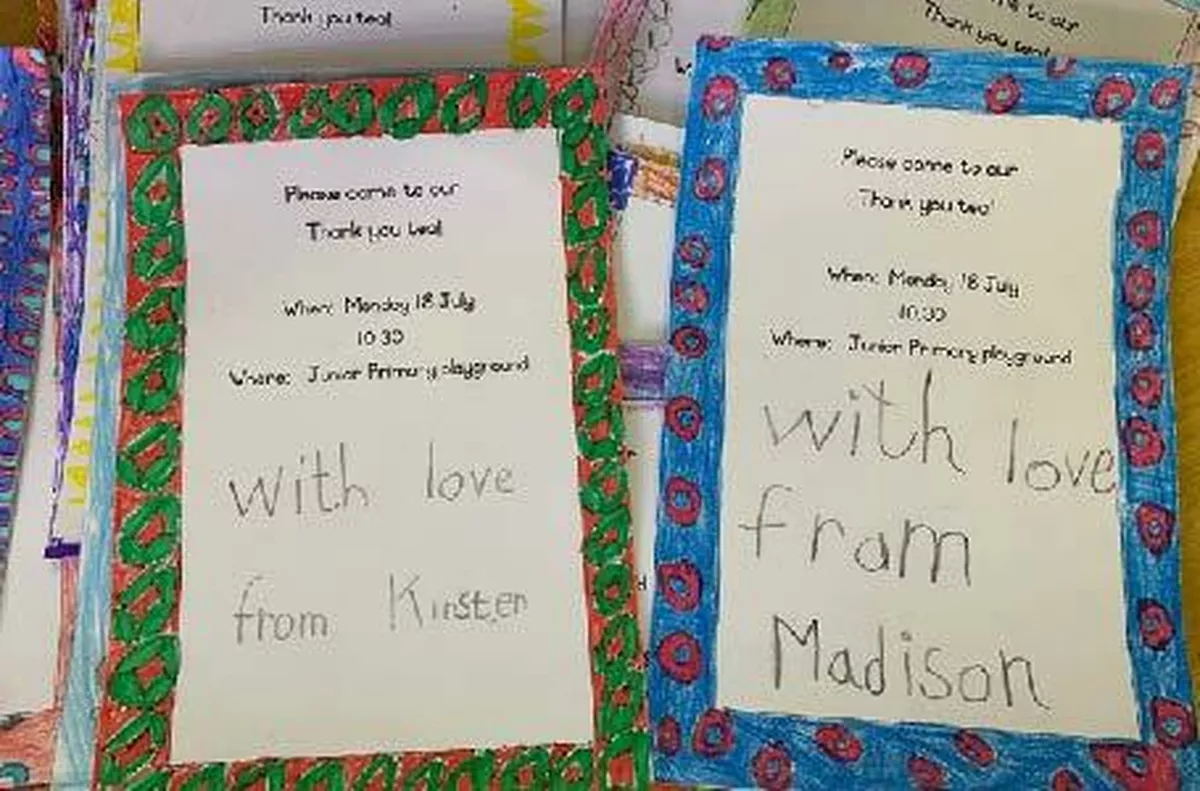 Thank you tea!
to our
Thank you tea!
Please come to our
Thank you tea!
When: Monday 18 July
10:30
Where: Junior Primary playground
with love
from Kirsten
Please come to our
Thank you tea!
When: Monday 18 July
10:30
Where: Junior Primary playground
with love
from
Madison